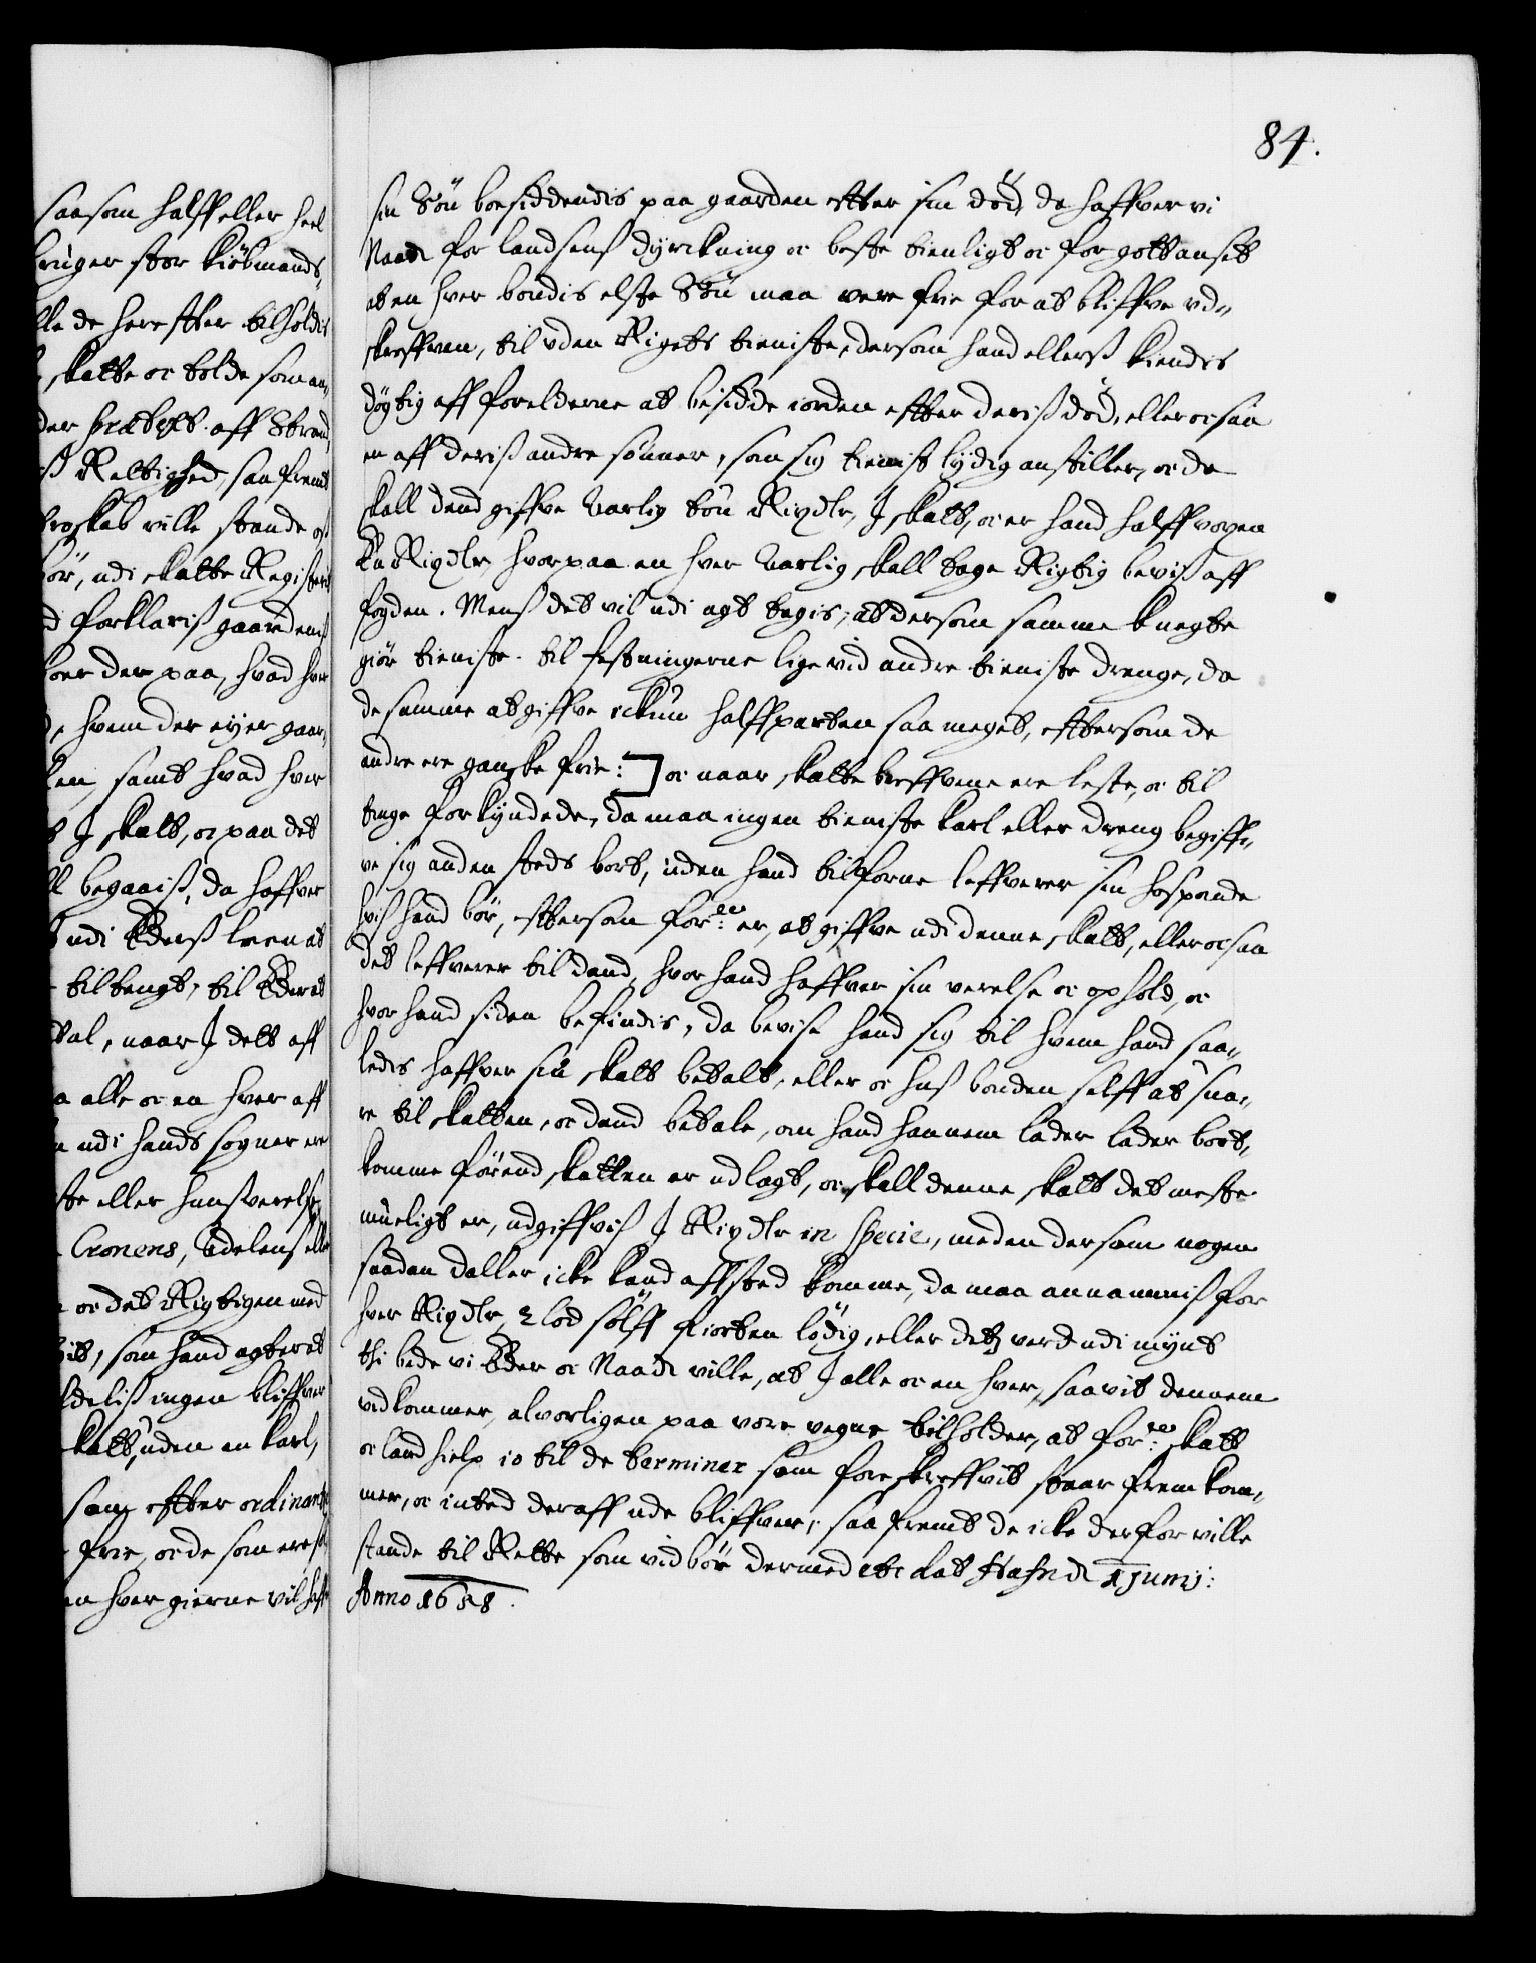 84.
saasom halff eller heel
bruger stor kiöbmands„
lle de her efter tilholdis
skatte oc tolde som an„
der præteqst aff Strand
ß Rettighed, saa fremt
broskab ville stande oß
bör, udi skatte Registerit
d forklariß gaardenß
boer der paa, hvad hver
d, hvem der eyer gaar„
ken, samt hvad hver
t J skatt, oc paa det
ll begaaiß, da haffver
t udi Ederß leen at
tilbengt, til Eder at
tal, naar J dett aff
a alle oc en hver aff
n udi hands sogner ere
ste eller huusverelse
Cronens, Edelens eller
oc det Rigtigen med
hit, som hand agter at
ldeliß ingen bliffver
skatt, uden en karl,
som efter ordinantz
frie, oc de som ere so
en hver gierne vil haffe
sin Sön besiddendis paa gaarden efter sin död, da haffver vi
Naad for landsenß dyrckning oc beste tienligt oc for gott anset
at en hver bondis elste Sön maa vere frie for at bliffve ud„
skreffven, til uden Rigets tieniste, dersom hand ellerß kiendis
dögtig aff forelderne at besidde iorden efter deriß död, eller oc saa
en aff deriß andre sönner, som sig tienist lydig anstiller, oc da
skall dend giffve aarlig tou Rixdlr, J skatt, oc er hand halffvoxen
En Rixdlr hvorpaa en hver aarlig skall tage Rigtig beviß aff
fogden. Menß det vil udi agt tagis, at dersom samme knegte
giör tieniste til festningerne lige vid andre tieniste drenge, da
de samme at giffve ickun halffparten saa meget, eftersom de
andre ere ganske frie:] oc naar skatte breffvene ere leste, oc til
tinge forkyndede, da maa ingen tieniste karl eller dreng begiff„
ve sig anden steds bort, uden hand tilforne leffverer sin hosponde
hviß hand bör, eftersom for:ne er, at giffve udi denne skatt, eller oc saa
det leffverer til dend, hvor hand haffver sin verelse oc ophold, oc
hvor hand siden befindis, da bevise hand sig til hvem hand saa„
ledis haffver sin skatt betalt, eller oc huß bonden selff at sva„
re til skatten, oc dend betale, om hand hannem lader lader bort„
komme förend skatten er udlagt, oc skall denne skatt det meste
mueligt er, udgiffviß J Rixdlr in specie, meden dersom nogen
saadan daller icke kand affsted komme, da maa annammiß for
hver Rixdlr, 2 lod sölff fiorten lödig, eller detz verd udi mynt
thi bede vi Eder oc Naadl ville, at J alle oc en hver, saavit dennem
vedkommer, alvorligen paa vore vegne tilholder, at for:ne skatt
oc land hielp io til de terminer som foreskreffvit staar frem kom„
mer, oc inted deraff ude bliffver, saa fremt de icke derfor ville
stande til Rette som vid bör dermed etc. dat Hafn d 1 Junij:
Anno 1658.